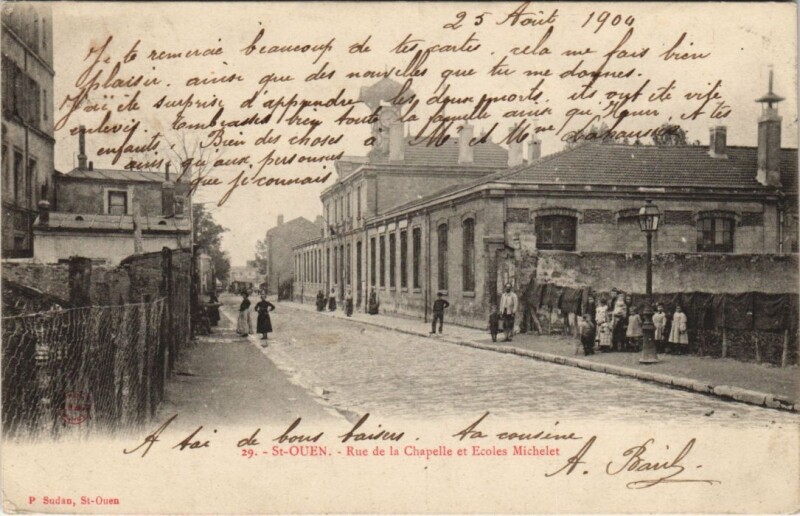 25 Août 1904
Je te remercie beaucoup de tes cartes. cela me fais bien
plaisir. ainsi que des nouvelles que tu me donnes.
J'ai été surprise d'apprendre les deux morts. ils ont été vite
enlevés. Embrasses bien toute la famille ainsi que Henri, A tes
enfants. Bien des choses à Mr et Mme
ainsi qu'aux personnes
que je connais
A toi de bons baisers. ta cousine
29. - St-OUEN. - Rue de la Chapelle et Ecoles Michelet
A.
P Sudan, St-Ouen